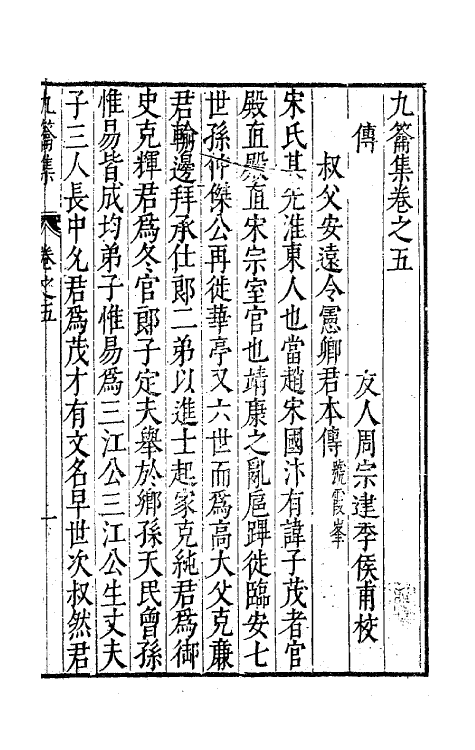 九籥集卷之五
傳 友人周宗建季侯甫校
叔父安遠令憲卿君本傳號霞峯
宋氏其先淮東人也當趙宋國汴有諱子茂者官
殿直殿直宋宗室官也靖康之亂扈蹕徙臨安七
世孫仲傑公再徙華亭又六世而爲高大父克廉
君輸邊拜承仕郎二弟以進士起家克純君爲御
史克輝君爲冬官郎子定夫舉於鄉孫天民曾孫
惟易皆成均弟子惟易爲三江公三江公生丈夫
子三人長中允君爲茂才有文名早世次叔然君
九籥集 卷之五 一